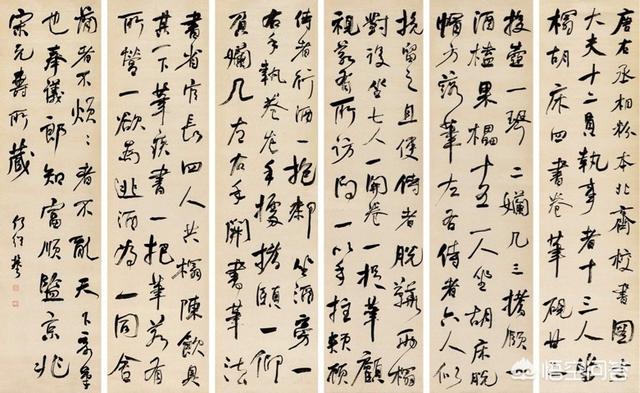 唐右丞相粉本北齋校書圖士
大夫十二員執事者十三人坐
榻胡床四書卷筆硯廿二
投壺一琴二嬾几三搘頤一
酒榼果樏十五一人坐胡床脫
帽方落筆左右侍者六人似
挽留之且使侍者脫鞾兩榻
對設坐七人一開卷一捉筆顧
視若有所訪問一以手拄頰顧
侍者行酒一抱郄坐酒旁一
右手執卷左手據搘頤一仰
負嬾几左右手開書筆法
書省官長四人共榻陳飲具
其一下筆疾書一把筆若有
所營一欲為逃酒為一同舍
者不煩〻者不亂天下奇筆
也奉儀郎知富順監京兆
宋元壽所藏
何紹基
悟空问答